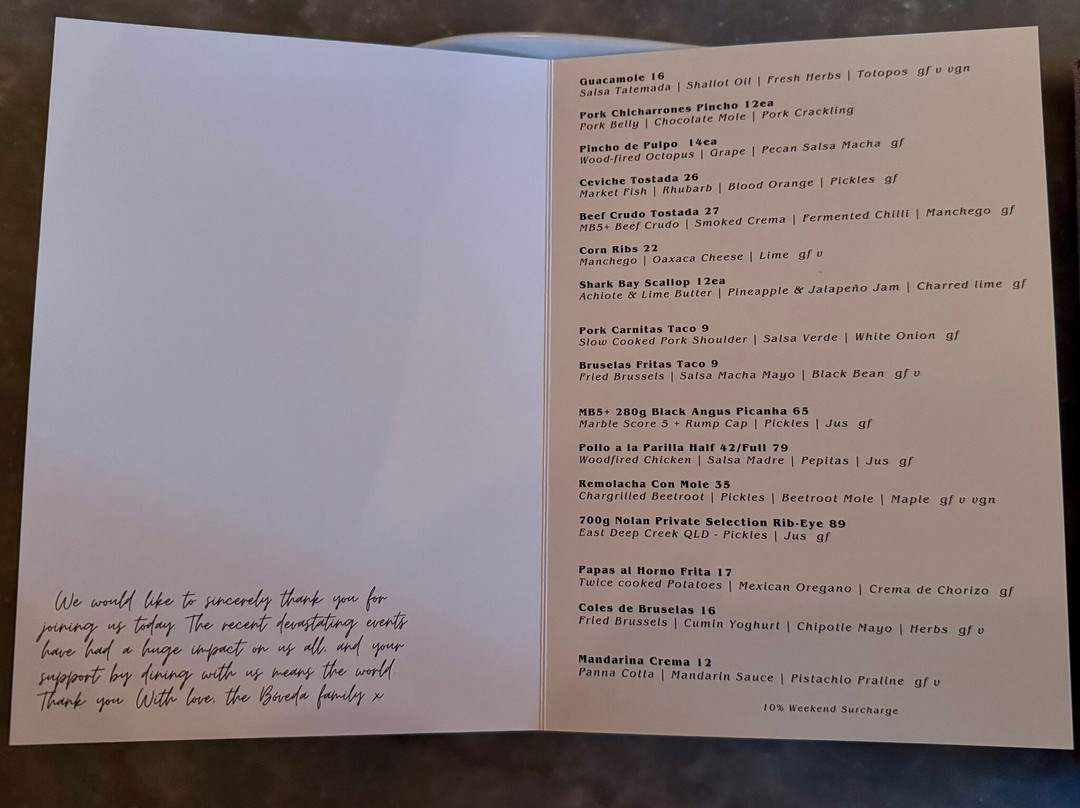 We would like to sincerely thank you for
joining us today. The recent devastating events
have had a huge impact on us all, and your
support by dining with us means the world
Thank you With love, the Bóveda family x
Guacamole 16
Salsa Tatemada | Shallot Oil | Fresh Herbs | Totopos gf v vgn
Pork Chicharrones Pincho 12ea
Pork Belly | Chocolate Mole | Pork Crackling
Pincho de Pulpo 14ea
Wood-fired Octopus | Grape | Pecan Salsa Macha gf
Ceviche Tostada 26
Market Fish | Rhubarb | Blood Orange | Pickles gf
Beef Crudo Tostada 27
MB5+ Beef Crudo | Smoked Crema | Fermented Chilli | Manchego gf
Corn Ribs 22
Manchego | Oaxaca Cheese | Lime gf v
Shark Bay Scallop 12ea
Achiote & Lime Butter | Pineapple & Jalapeño Jam | Charred lime gf
Pork Carnitas Taco 9
Slow Cooked Pork Shoulder | Salsa Verde | White Onion gf
Bruselas Fritas Taco 9
Fried Brussels | Salsa Macha Mayo | Black Bean gf v
MB5+ 280g Black Angus Picanha 65
Marble Score 5 + Rump Cap | Pickles | Jus gf
Pollo a la Parilla Half 42/Full 79
Woodfired Chicken | Salsa Madre | Pepitas | Jus gf
Remolacha Con Mole 35
Chargrilled Beetroot | Pickles | Beetroot Mole | Maple gf v vgn
700g Nolan Private Selection Rib-Eye 89
East Deep Creek QLD - Pickles | Jus gf
Papas al Horno Frita 17
Twice cooked Potatoes | Mexican Oregano | Crema de Chorizo gf
Coles de Bruselas 16
Fried Brussels | Cumin Yoghurt | Chipotle Mayo | Herbs gf v
Mandarina Crema 12
Panna Cotta | Mandarin Sauce | Pistachio Praline gf v
10% Weekend Surcharge